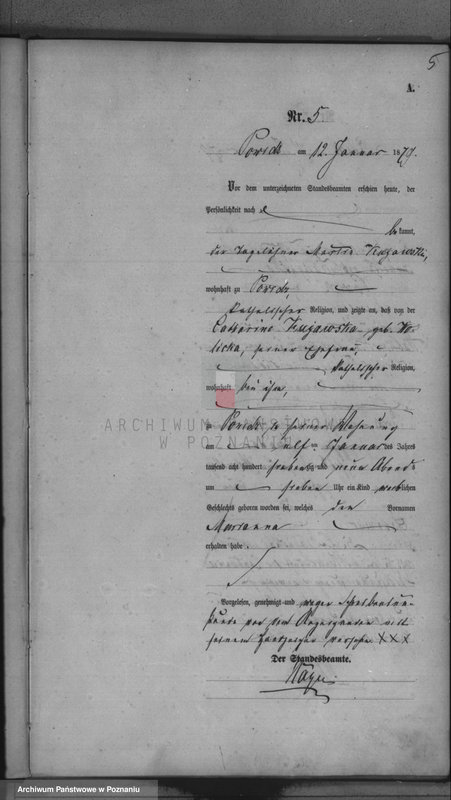 5
A.
Nr. 5
Powidz am 12. Januar 1877.
Vor dem unterzeichneten Standesbeamten erschien heute, der
Persönlichkeit nach
bekannt,
der Tagelöhner Martin Kujawski,
wohnhaft zu Powidz,
katholischer Religion, und zeigte an, daß von der
Catharina Kujawska geb.
seiner Ehefrau,
katholischer Religion,
wohnhaft bei ihm,
ARCHIWUM PAŃSTWOWE
W POZNANIU
Powidz in seiner Wohnung
am elften Januar des Jahres
tausend acht hundert siebenzig und Abends
um sieben Uhr ein Kind weiblichen
Geschlechts geboren worden sei, welches den Vornamen
Marianna
erhalten habe.
Vorgelesen, genehmigt und wegen Schreibensun-
kunde von dem Anzeigenden mit
seinem Handzeichen versehen XXX
Der Standesbeamte.
Archiwum Państwowe w Poznaniu